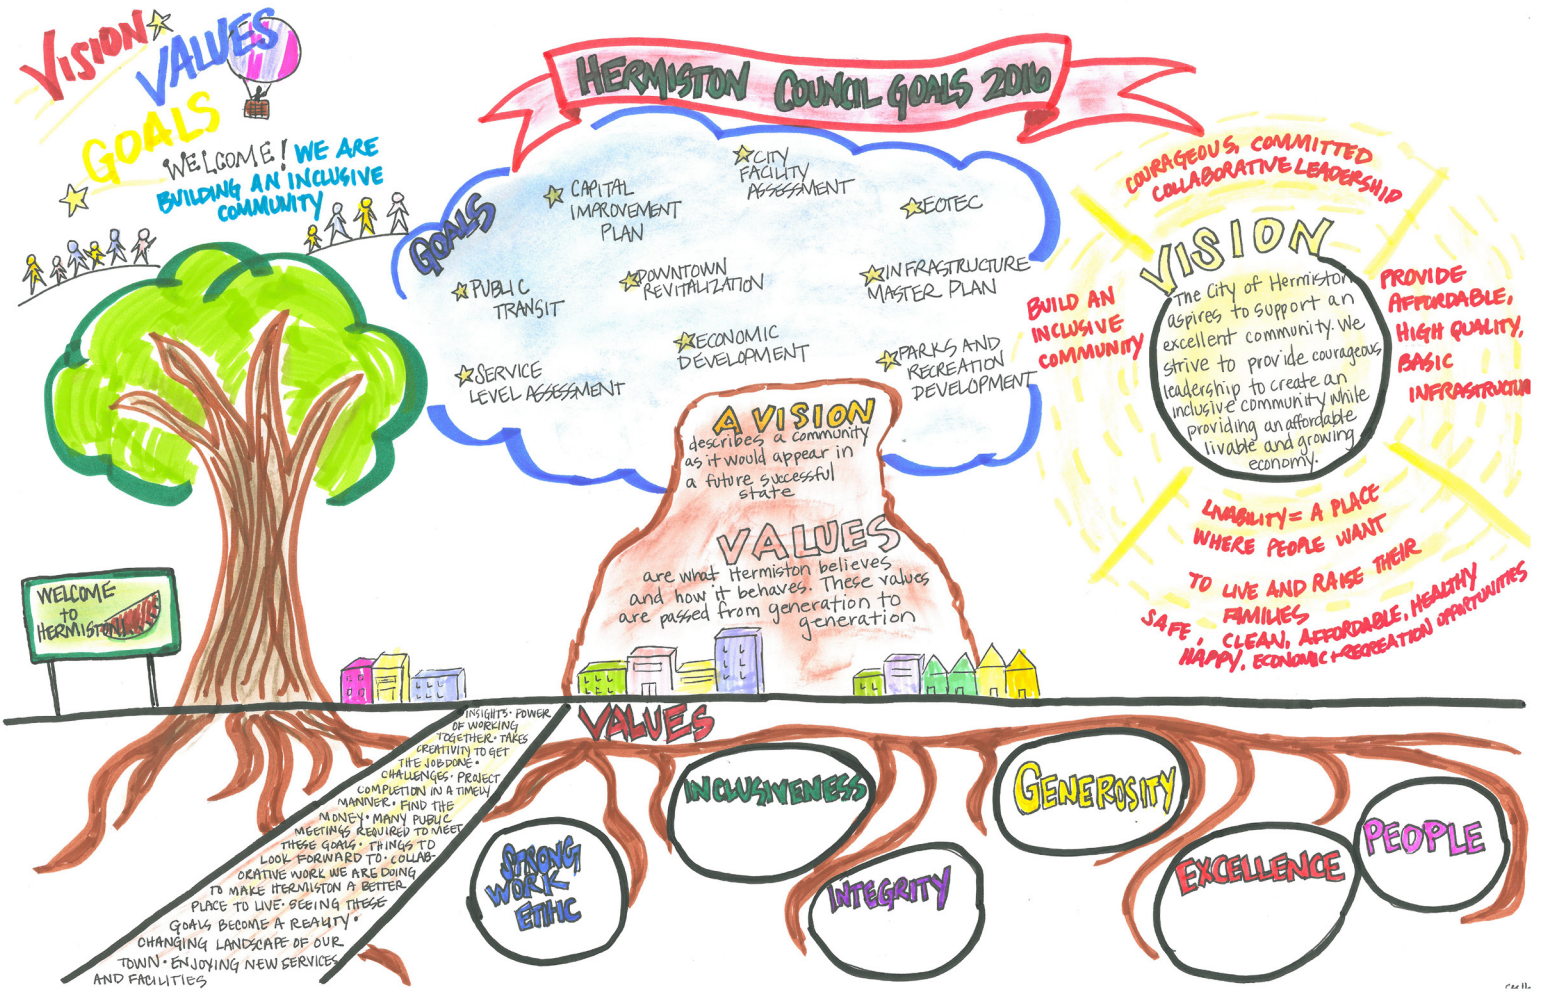 VISION
VALUES
GOALS
WELCOME! WE ARE
BUILDING AN INCLUSIVE
COMMUNITY
HERMISTON COUNCIL GOALS 2016
GOALS
CAPITAL
IMPROVEMENT
PLAN
CITY
FACILITY
ASSESSMENT
EOTEC
PUBLIC
TRANSIT
DOWNTOWN
REVITALIZATION
INFRASTRUCTURE
MASTER PLAN
SERVICE
LEVEL ASSESSMENT
ECONOMIC
DEVELOPMENT
PARKS AND
RECREATION
DEVELOPMENT
A VISION
describes a community
as it would appear in
a future successful
state
VALUES
are what Hermiston believes
and how it behaves. These values
are passed from generation to
generation
COURAGEOUS, COMMITTED
COLLABORATIVE LEADERSHIP
VISION
The City of Hermiston
aspires to support an
excellent community. We
strive to provide courageous
leadership to create an
inclusive community while
providing an affordable
livable and growing
economy.
BUILD AN
INCLUSIVE
COMMUNITY
PROVIDE
AFFORDABLE,
HIGH QUALITY,
BASIC
INFRASTRUCTUR
LIVABILITY = A PLACE
WHERE PEOPLE WANT
TO LIVE AND RAISE THEIR
FAMILIES
SAFE, CLEAN, AFFORDABLE, HEALTHY
HAPPY, ECONOMIC + RECREATION OPPORTUNITIES
WELCOME
TO
HERMISTON
INSIGHTS • POWER
OF WORKING
TOGETHER • TAKES
CREATIVITY TO GET
THE JOB DONE •
CHALLENGES • PROJECT
COMPLETION IN A TIMELY
MANNER • FIND THE
MONEY • MANY PUBLIC
MEETINGS REQUIRED TO MEET
THESE GOALS • THINGS TO
LOOK FORWARD TO • COLLAB-
ORATIVE WORK WE ARE DOING
TO MAKE HERMISTON A BETTER
PLACE TO LIVE • SEEING THESE
GOALS BECOME A REALITY •
CHANGING LANDSCAPE OF OUR
TOWN • ENJOYING NEW SERVICES
AND FACILITIES
VALUES
STRONG
WORK
ETIHC
INCLUSIVENESS
INTEGRITY
GENEROSITY
EXCELLENCE
PEOPLE